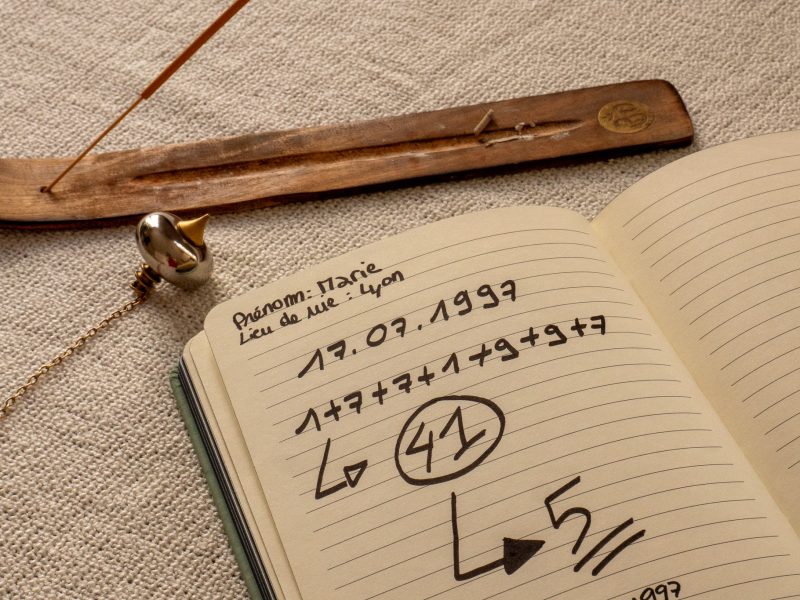 Prénom: Marie
Lieu de nue : Lyon
17.07.1997
1+7+7+1+9+9+7
41
5
1997